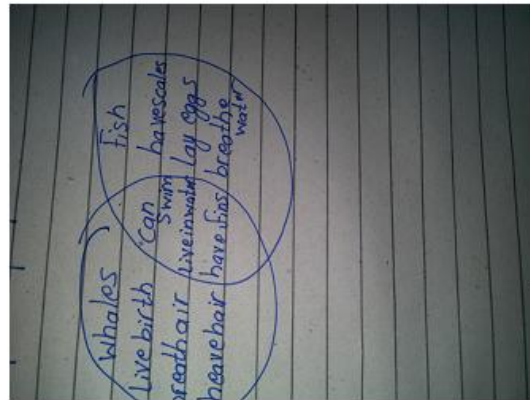 Whales
Live birth
breath air
heave hair
can
swim
live in water
have fins
fish
have scales
lay eggs
breathe
water